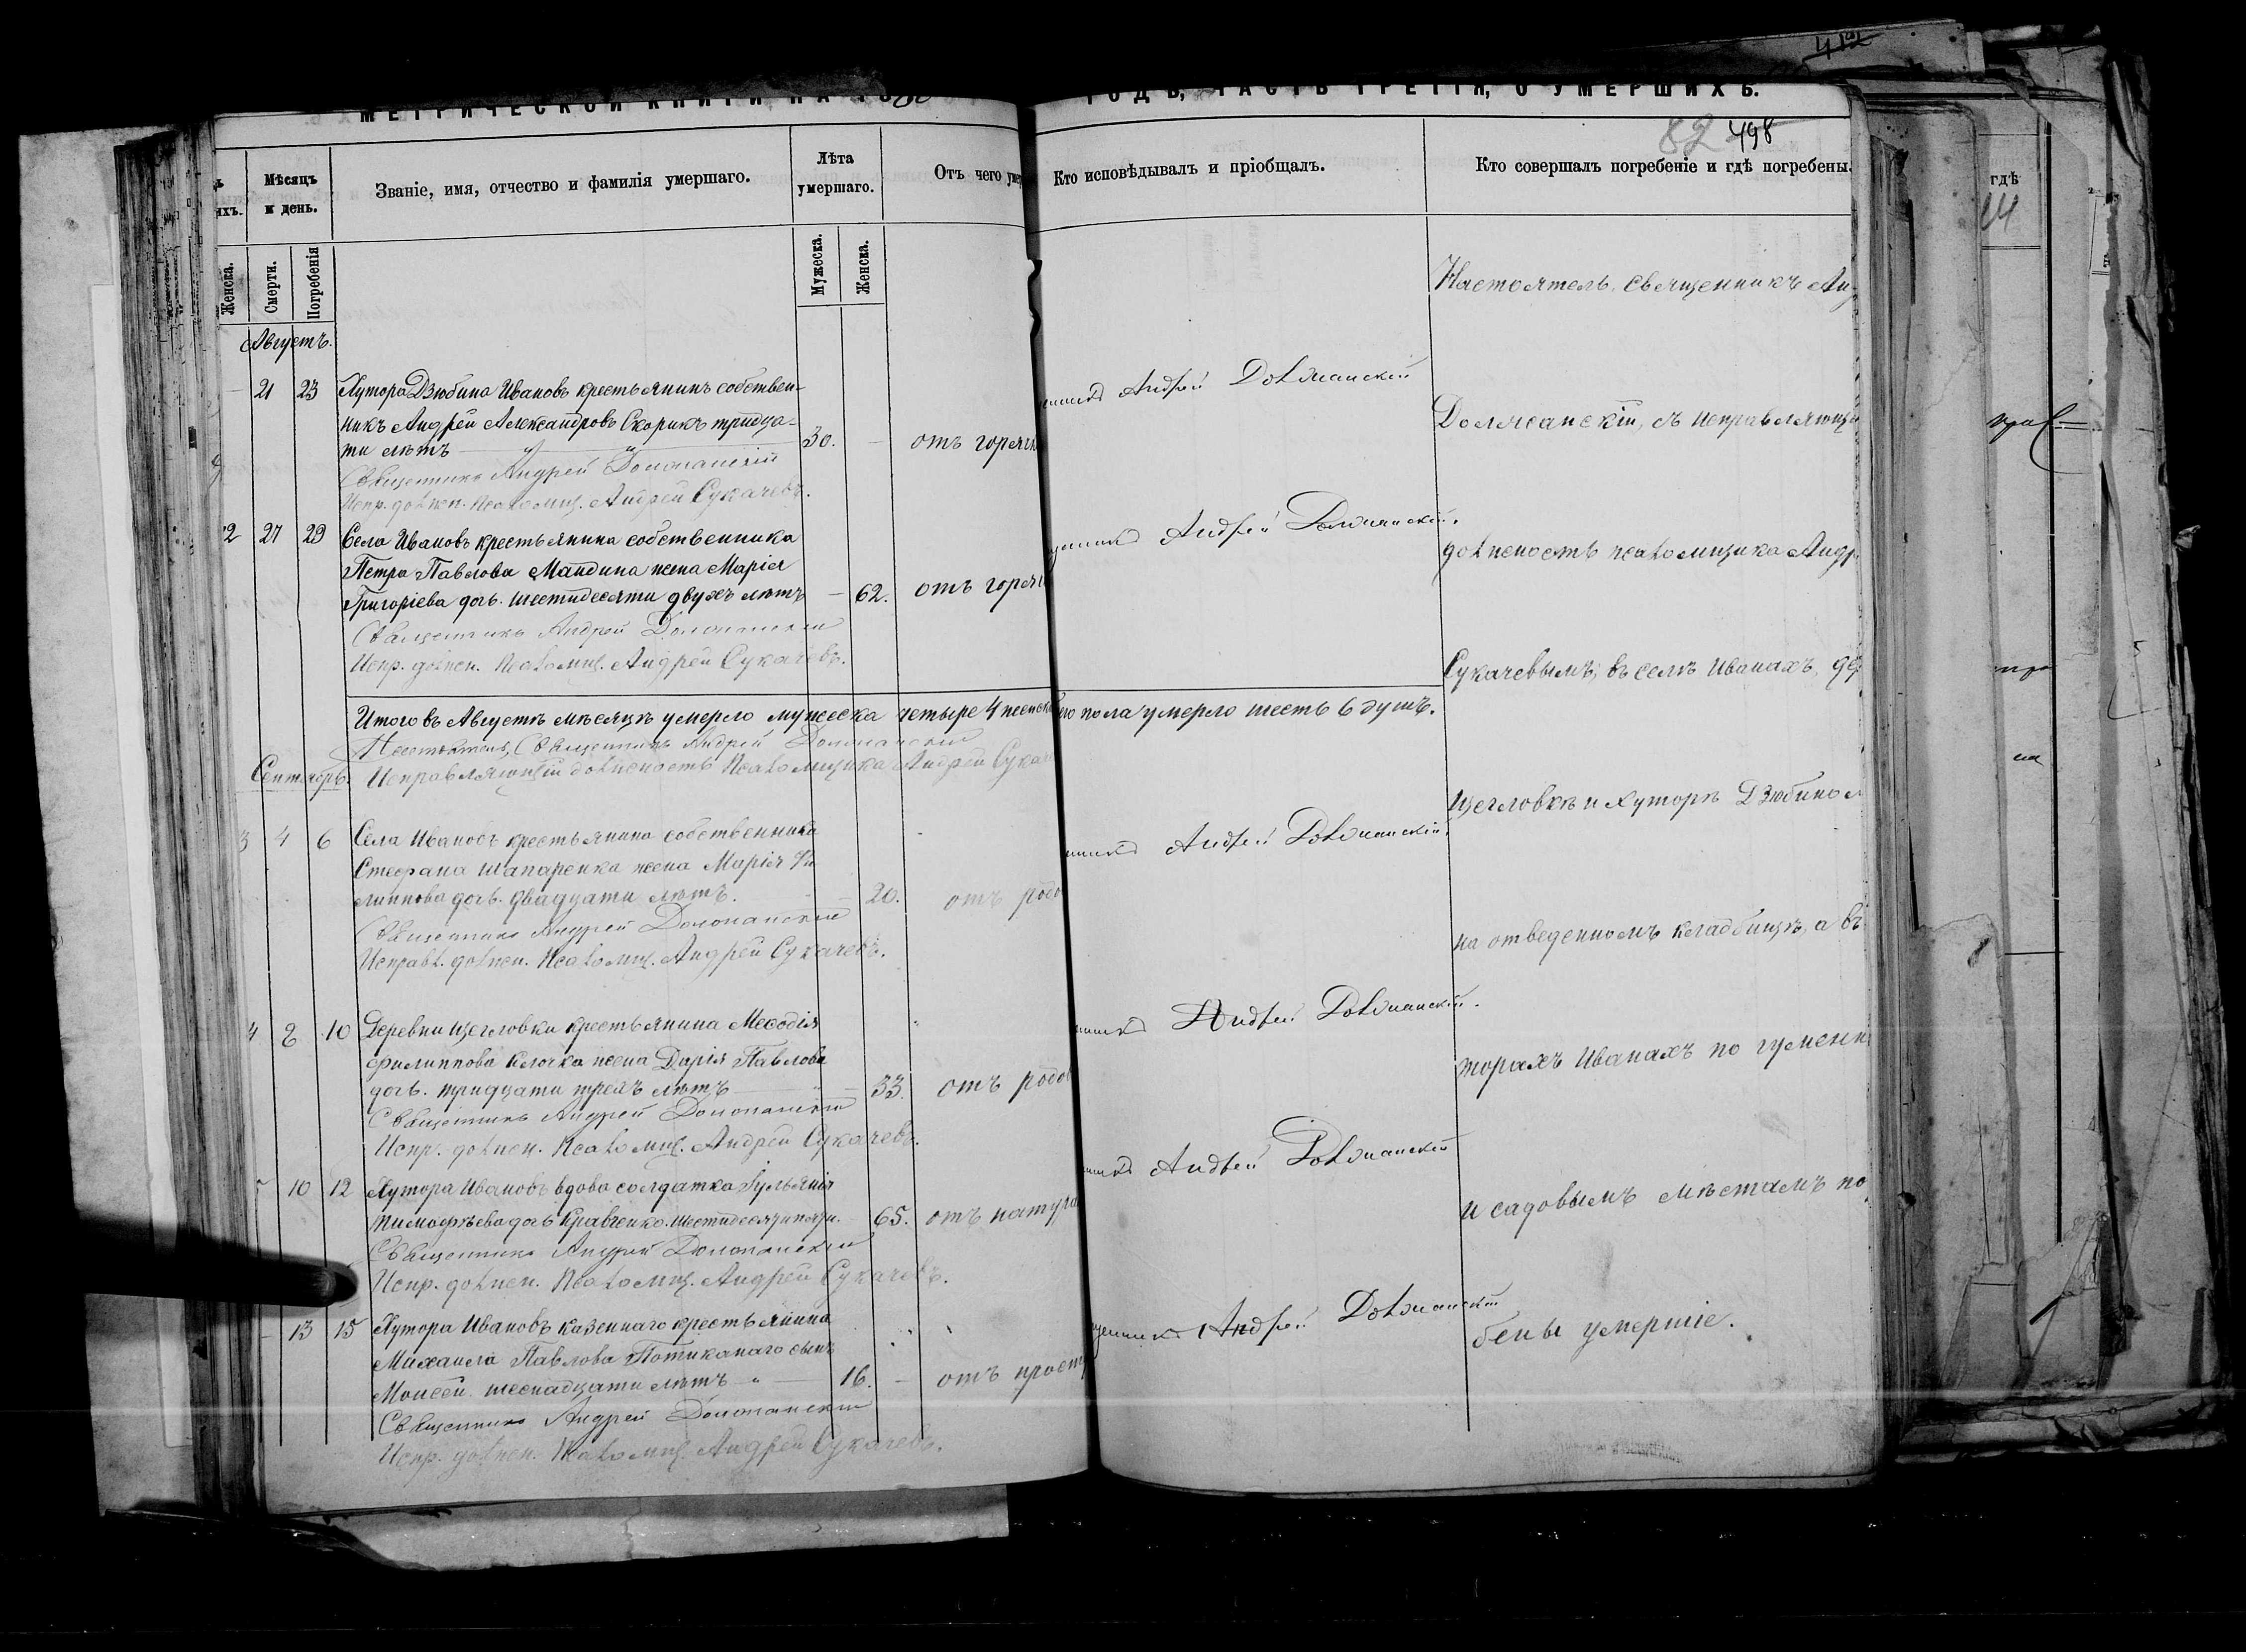 МЕТРИЧЕСКОЙ КНИГИ НА 18
ГОДЪ, ЧАСТЬ ТРЕТІЯ, О УМЕРШИХЪ.
82 498
Мѣсяцъ и день.
Званіе, имя, отчество и фамилія умершаго.
Лѣта умершаго.
Отъ чего умер
Кто исповѣдывалъ и пріобщалъ.
Кто совершалъ погребеніе и гдѣ погребены.
Женска.
Смерти.
Погребенія
Мужеска.
Женска.
Августъ.
21 23 Хутора Дзюбина Ивановъ крестьянинъ собствен-
никъ Андрей Александровъ Скорикъ тридца-
ти лѣтъ 30. отъ горячк
Священникъ Андрей Долманскій
Испр. должн. Псаломщ. Андрей Сукачевъ.
2 27 29 Села Ивановъ крестьянина собственника
Петра Павлова Мандина жена Марія
Григоріева дочь. шестидесяти двухъ лѣтъ 62. отъ горяч
Священникъ Андрей Долманскій
Испр. должн. Псаломщ. Андрей Сукачевъ.
Итого въ Августѣ мѣсяцѣ умерло мужеска четыре 4 женскаго пола умерло шесть 6 душъ.
Настоятель, Священникъ Андрей Долманскій
Исправляющій должность Псаломщика Андрей Сукач
Сентябрь.
3 4 6 Села Ивановъ крестьянина собственника
Стефана Шапаренка жена Марія Фи
липпова дочь. двадцати лѣтъ. 20. отъ родо
Священникъ Андрей Долманскій
Исправл. должн. Псаломщ. Андрей Сукачевъ.
4 8 10 Деревни Щегловки крестьянина Меѳодія
Филиппова Клочка жена Дарія Павлова
дочь. тридцати трехъ лѣтъ 33. отъ родо
Священникъ Андрей Долманскій
Испр. должн. Псаломщ. Андрей Сукачевъ.
10 12 Хутора Ивановъ вдова солдатка Іульянія
Тимофѣева дочь Кравченко. шестидесяти пяти. 65. отъ натура
Священникъ Андрей Долманскій
Испр. должн. Псаломщ. Андрей Сукачевъ.
13 15 Хутора Ивановъ казеннаго крестьянина
Михаила Павлова Потиканаго сынъ
Моисей. шеснадцати лѣтъ 16. отъ прост
Священникъ Андрей Долманскій
Испр. должн. Псаломщ. Андрей Сукачевъ.
Андрей Долманскій
Андрей Долманскій.
Андрей Долманскій.
Андрей Долманскій.
Андрей Долманскій
Андрей Долманскій
Настоятель, Священникъ Анд
Долманскій, съ исправляющи
должность псаломщика Андр
Сукачевымъ; въ селѣ Иванахъ, де
Щегловкѣ и хуторѣ Дзюбино
на отведенномъ кладбищѣ, а въ
торахъ Иванахъ по гуменн
и садовымъ мѣстамъ по
бены умершіе.
гдѣ